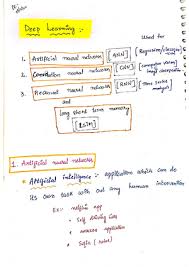 Deep Learning :-
Used for
1. Artificial neural network [ANN] (Regression/classification)
2. Convolution neural network [CNN] (Computer vision/ image classification)
3. Recurrent neural network [RNN] (Time series analysis)
and
long short term memory
[LSTM]
1. Artificial neural network
* Artificial intelligence :- application which can do
its own task with out any human intervention
Ex:- netflix app
* Self driving cars
* amazon application